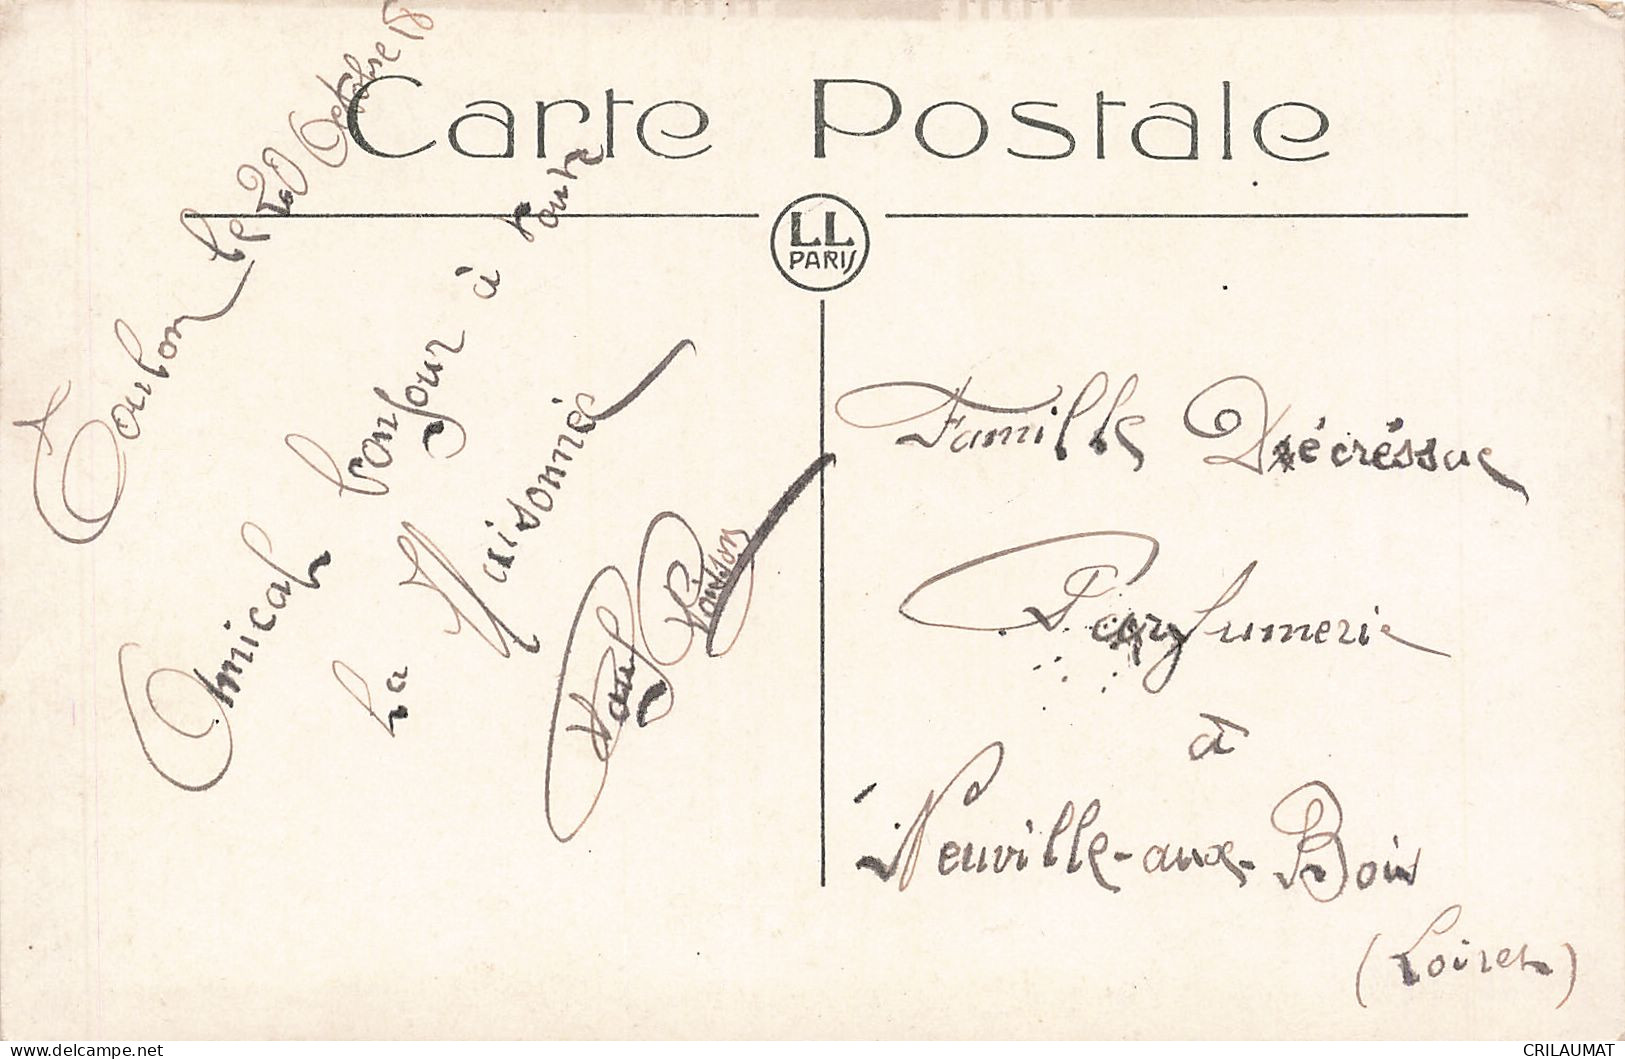 Carte Postale
LL
PARIS
Toulon le 20 Octobre 18
Amical bonjour à toute
la Maisonnée
Paul Poinson
Famille Décréssac
Parfumerie
à
Neuville-aux-Bois
(Loiret)
delcampe.net
CRILAUMAT